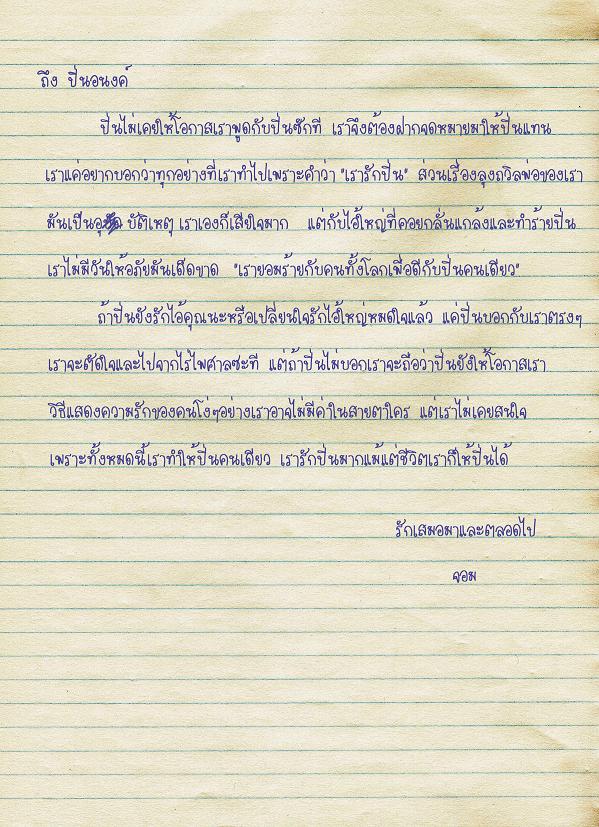 ถึง ปิ่นอนงค์
ปิ่นไม่เคยให้โอกาสเราพูดกับปิ่นซักที เราจึงต้องฝากจดหมายมาให้ปิ่นแทน
เราแค่อยากบอกว่าทุกอย่างที่เราทำไปเพราะคำว่า "เรารักปิ่น" ส่วนเรื่องลุงถวิลพ่อของเรา
มันเป็นอุ บัติเหตุ เราเองก็เสียใจมาก แต่กับไอ้ใหญ่ที่คอยกลั่นแกล้งและทำร้ายปิ่น
เราไม่มีวันให้อภัยมันเด็ดขาด "เรายอมร้ายกับคนทั้งโลกเพื่อดีกับปิ่นคนเดียว"
ถ้าปิ่นยังรักไอ้คุณนะหรือเปลี่ยนใจรักไอ้ใหญ่หมดใจแล้ว แค่ปิ่นบอกกับเราตรงๆ
เราจะตัดใจและไปจากไร่ไพศาลซะที แต่ถ้าปิ่นไม่บอกเราจะถือว่าปิ่นยังให้โอกาสเรา
วิธีแสดงความรักของคนโง่ๆอย่างเราอาจไม่มีค่าในสายตาใคร แต่เราไม่เคยสนใจ
เพราะทั้งหมดนี้เราทำให้ปิ่นคนเดียว เรารักปิ่นมากแม้แต่ชีวิตเราก็ให้ปิ่นได้
รักเสมอมาและตลอดไป
จอม